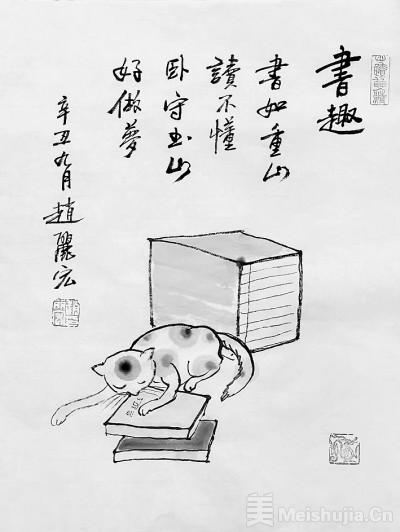 書趣
書如重山
讀不懂
卧守书山
好做夢
辛丑九月趙麗宏
美 Meishujia.Cn